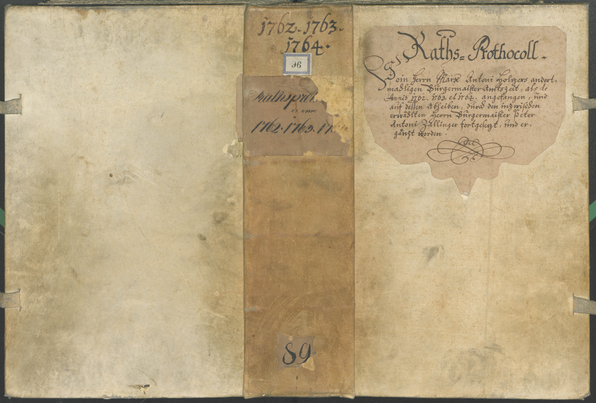 1762. 1763.
1764.
Raths
1762. 1763. 17
89
Raths = Prothocoll.
Herrn Marx Antoni Holzers andert-
mahligen Burgermaister Amtszeit, als de
Annis 1762. 1763. et 1764. angefangen, und
auf dessen Ableiben, durch den inzwischen
erwählten Herrn Burgermaister Peter
Antoni Zallinger fortgesezt, und er-
gänzt worden.